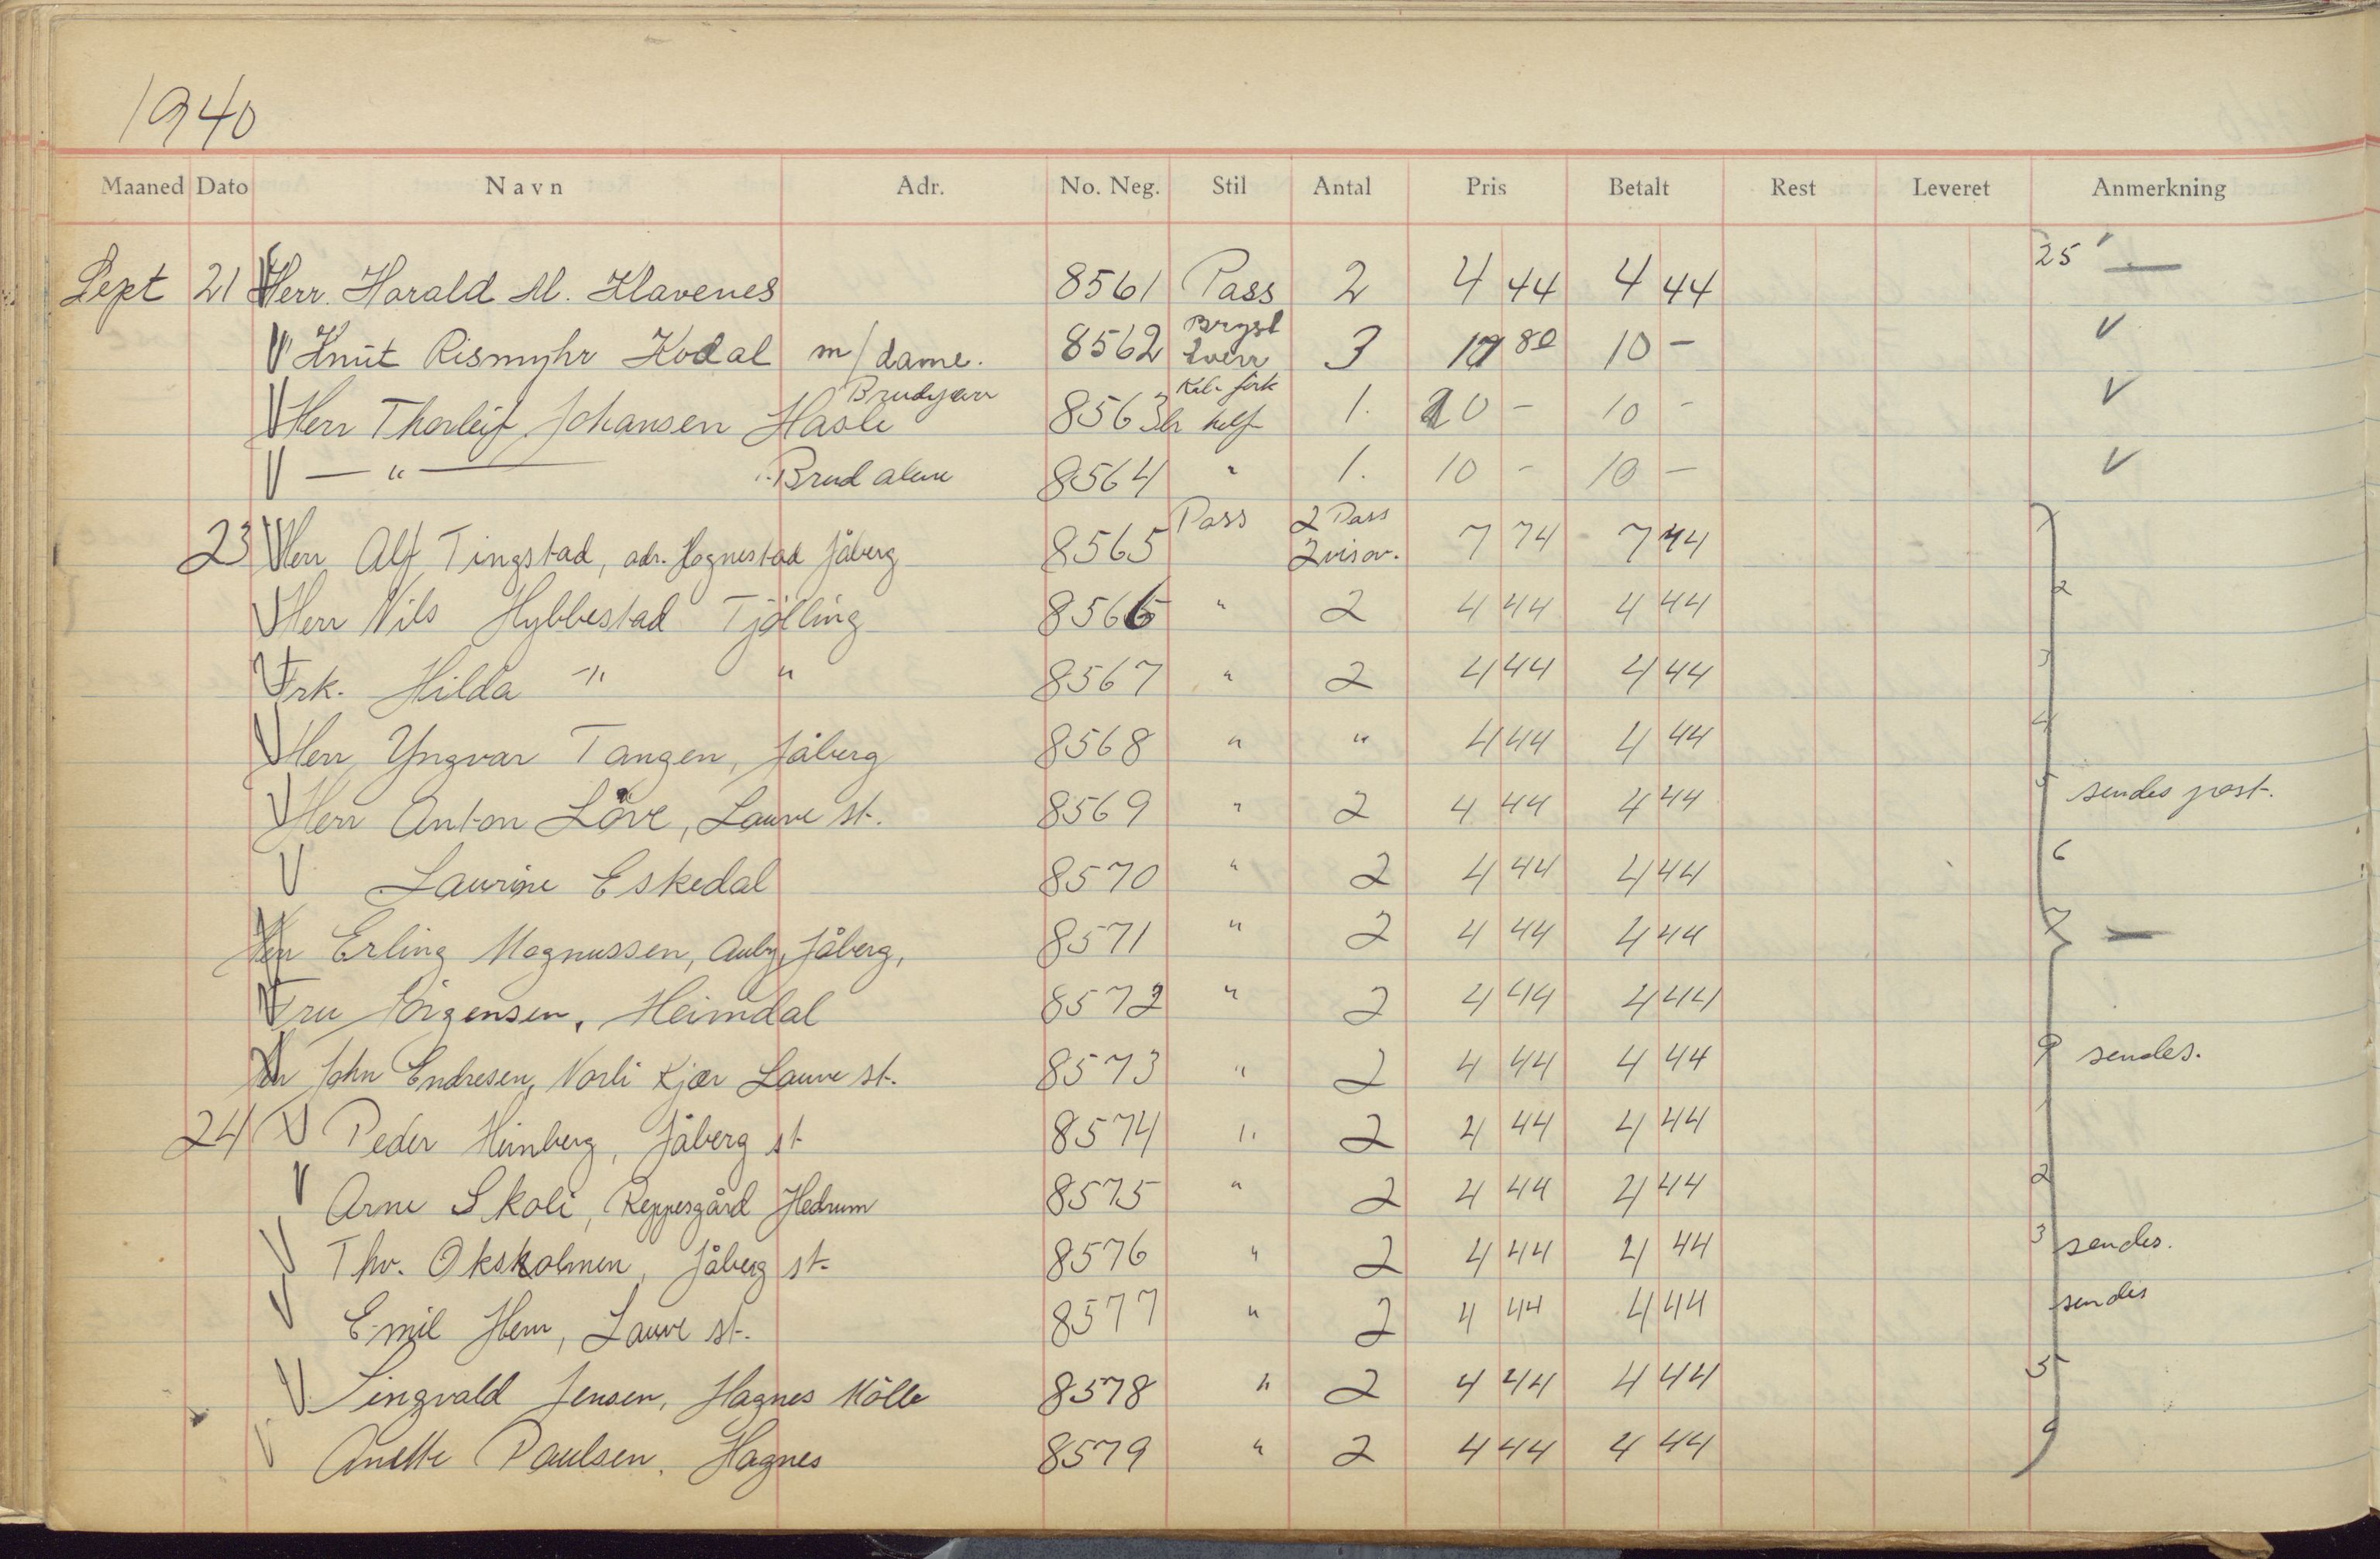 1940
Maaned Dato Navn Adr. No. Neg. Stil Antal Pris Betalt Rest Leveret Anmerkning
Sept 21 Herr. Harald M. Klavenes 8561 Pass 2 4 44 4 44 25 —
V Knut Rismyhr Kodal m/dame. 8562 Bryst 3 80 10 - V
V Herr Thorleif Johansen Hasle 8563 1. 10 - V
V — " — Brud alene 8564 " 1. 10 - 10 - V
23 V Herr Alf Tingstad, adr. Hognestad Jåberg 8565 Pass 2 Pass 2 visor. 7 74 7 74 1
V Herr Nils Hybbestad Tjølling 8566 " 2 4 44 4 44 2
V Frk. Hilda " " 8567 " 2 4 44 4 44 3
V Herr Yngvar Tangen, Jåberg 8568 " " 4 44 4 44 4
V Herr Anton Löve, Lauve st. 8569 " 2 4 44 4 44 5 sendes post.
V Laurine Eskedal 8570 " 2 4 44 4 44 6
Herr Erling Magnussen, Auby, Jåberg, 8571 " 2 4 44 4 44 7 —
V Fru Jörgensen, Heimdal 8572 " 2 4 44 4 44
Herr John Endresen, Norli Kjær Lauve st. 8573 " 2 4 44 4 44 9 sendes.
24 V Peder Heimberg, Jåberg st 8574 " 2 4 44 4 44 1
V Arne Skoli, Reppesgård Hedrum 8575 " 2 4 44 4 44 2
V Thv. Oksholmen, Jåberg st. 8576 " 2 4 44 4 44 3 sendes.
V Emil Hem, Lauve st. 8577 " 2 4 44 4 44 sendes
V Singvald Jensen, Hagnes Mölle 8578 " 2 4 44 4 44 5
V Anette Paulsen. Hagnes 8579 " 2 4 44 4 44